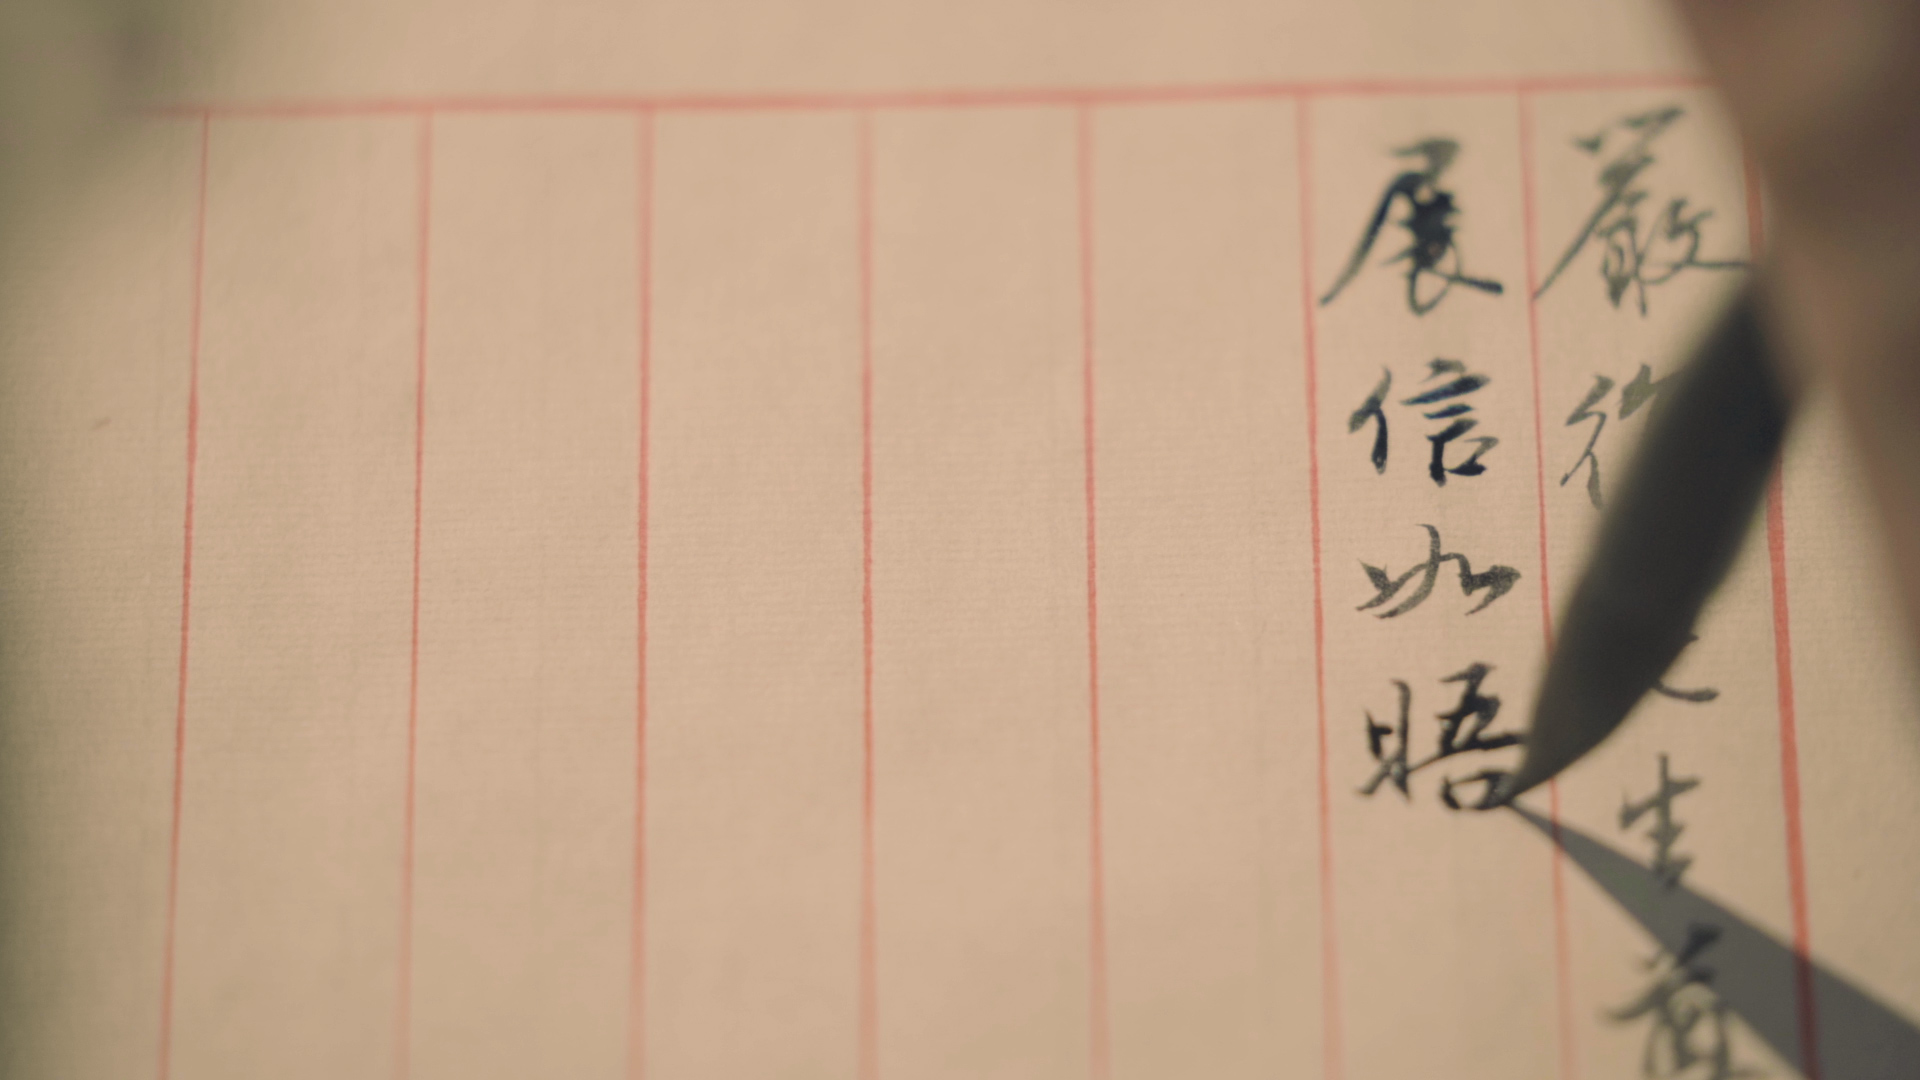 嚴 先生
展信如晤